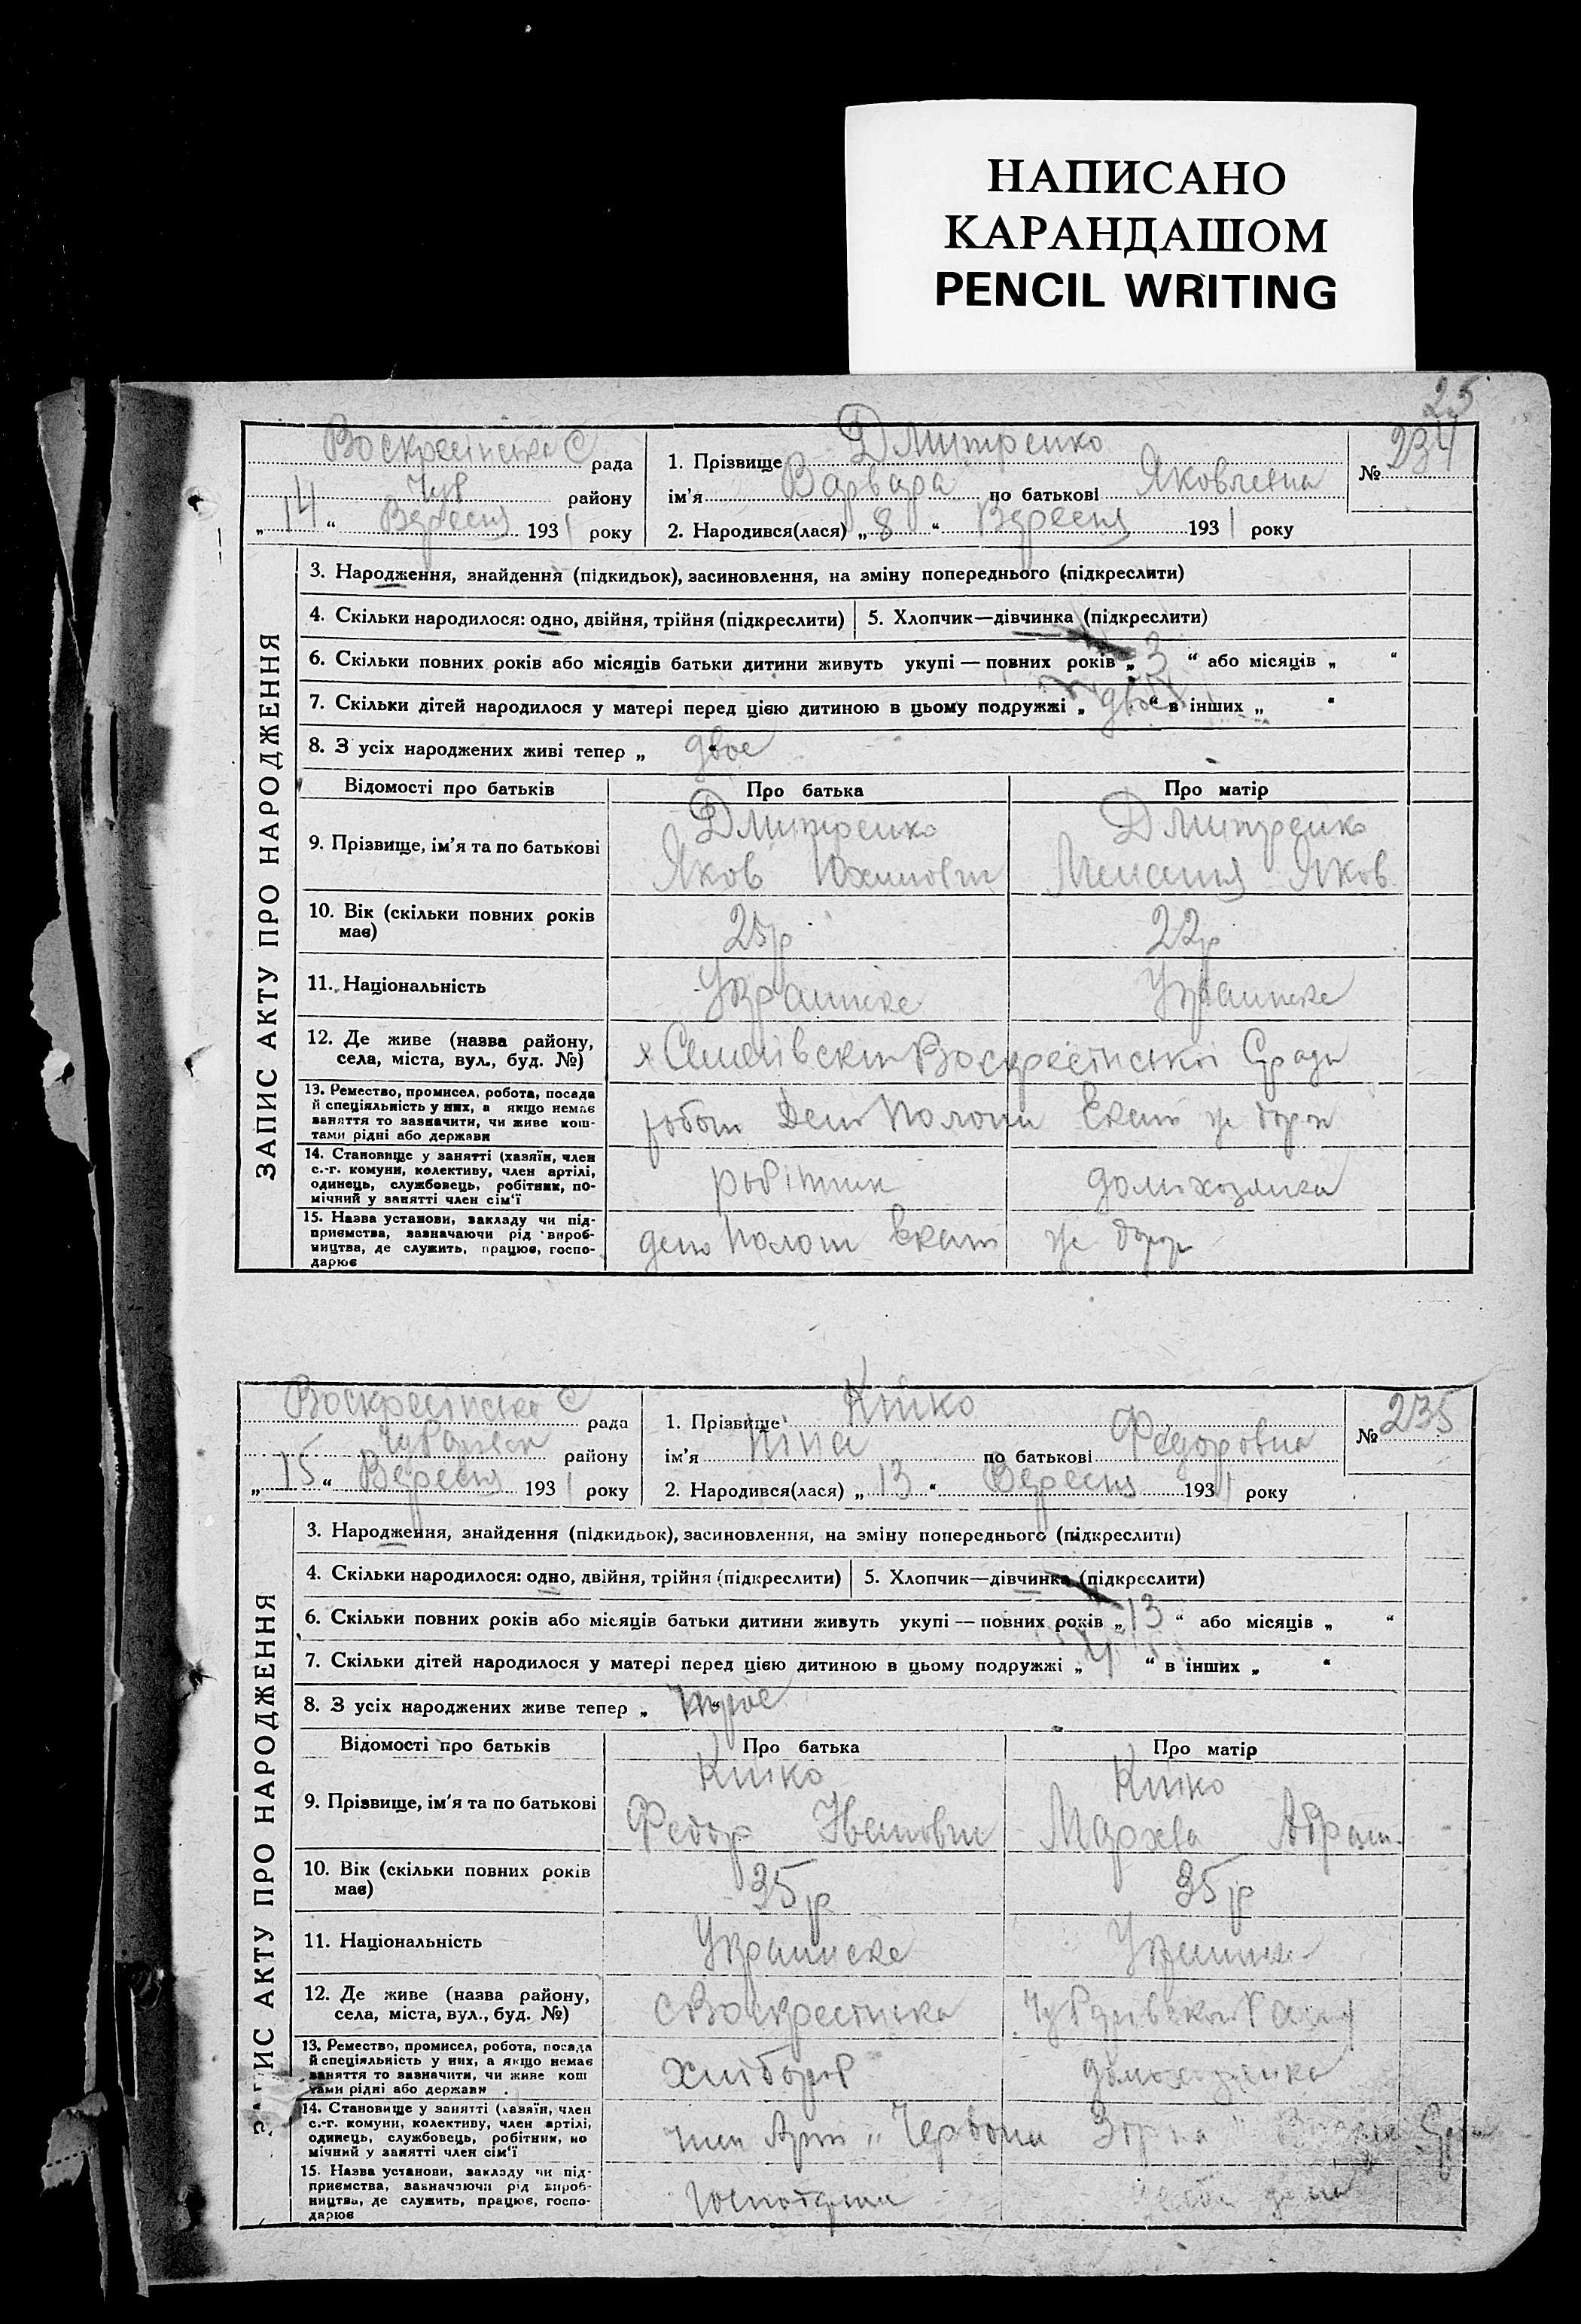 НАПИСАНО
КАРАНДАШОМ
PENCIL WRITING
25
Воскресінська С рада
Чуб району
„14“ Вересня 1931 року
1. Прізвище Дмитренко
ім'я Варвара по батькові Яковлевна
2. Народився(лася) „8“ Вересня 1931 року
№ 234
ЗАПИС АКТУ ПРО НАРОДЖЕННЯ
3. Народження, знайдення (підкидьок), засиновлення, на зміну попереднього (підкреслити)
4. Скільки народилося: одно, двійня, трійня (підкреслити) 5. Хлопчик—дівчинка (підкреслити)
6. Скільки повних років або місяців батьки дитини живуть укупі — повних років „3“ або місяців „ “
7. Скільки дітей народилося у матері перед цією дитиною в цьому подружжі „двоє“ в інших „ “
8. З усіх народжених живі тепер „двое
Відомості про батьків Про батька Про матір
9. Прізвище, ім'я та по батькові
Дмитренко Дмитренко
Яков Меланія Яков
10. Вік (скільки повних років має) 25р 22р
11. Національність Украинске Украинске
12. Де живе (назва району, села, міста, вул., буд. №)
Воскресінської Сради
13. Ремество, промисел, робота, посада
й спеціяльність у них, а якщо немає
заняття то зазначити, чи живе кош-
тами рідні або держави
Пологи Екат
14. Становище у занятті (хазяїн, член
с.-г. комуни, колективу, член артілі,
одинець, службовець, робітник, по-
мічний у занятті член сім'ї
робітник домохозяйка
15. Назва установи, закладу чи під-
приємства, зазначаючи рід вироб-
ництва, де служить, працює, госпо-
дарює
депо Пологи Екат
Воскресінська С рада
району
„15“ Вересня 1931 року
1. Прізвище Кийко
ім'я Ніна по батькові Федоровна
2. Народився(лася) „13“ Вересня 1931 року
№ 235
ЗАПИС АКТУ ПРО НАРОДЖЕННЯ
3. Народження, знайдення (підкидьок), засиновлення, на зміну попереднього (підкреслити)
4. Скільки народилося: одно, двійня, трійня (підкреслити) 5. Хлопчик—дівчинка (підкреслити)
6. Скільки повних років або місяців батьки дитини живуть укупі — повних років „13“ або місяців „ “
7. Скільки дітей народилося у матері перед цією дитиною в цьому подружжі „4“ в інших „ “
8. З усіх народжених живе тепер „
Відомості про батьків Про батька Про матір
9. Прізвище, ім'я та по батькові
Кийко Кийко
Федор Іванович Мархва Абрам
10. Вік (скільки повних років має) 35р 35р
11. Національність Украинске
12. Де живе (назва району, села, міста, вул., буд. №)
С Воскресінка
13. Ремество, промисел, робота, посада
й спеціяльність у них, а якщо немає
заняття то зазначити, чи живе кош
тами рідні або держави
хлібороб домохозяйка
14. Становище у занятті (хазяїн, член
с.-г. комуни, колективу, член артілі,
одинець, службовець, робітник, по
мічний у занятті член сім'ї
член Арт „Червона Зірка“
15. Назва установи, закладу чи під-
приємства, зазначаючи рід вироб-
ництва, де служить, працює, госпо-
дарює